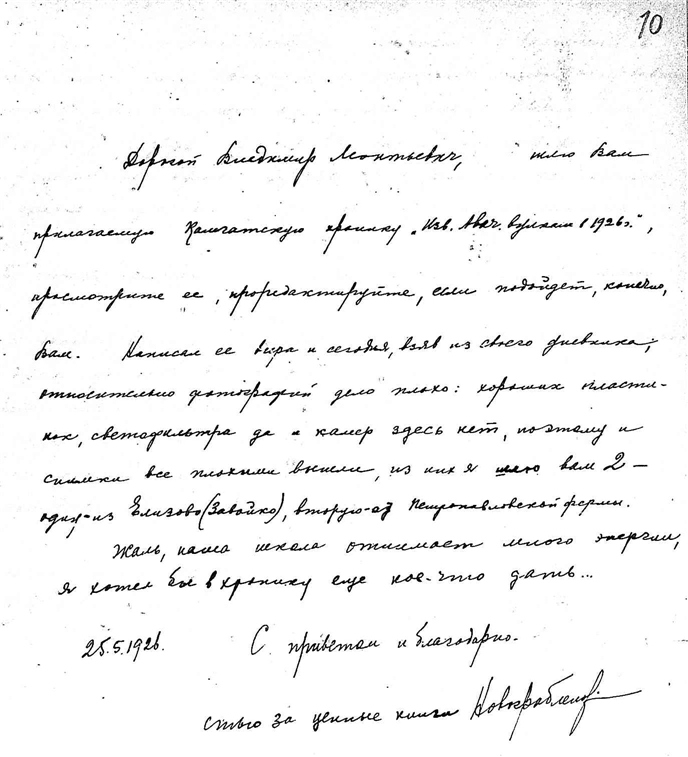 10
Дорогой Владимир Леонтьевич, шлю Вам
прилагаемую Камчатскую хронику „Изв. Авач. вулкана 1926г.",
просмотрите ее, проредактируйте, если подойдет, конечно,
Вам. Написал ее вчера и сегодня, взяв из своего дневника;
относительно фотографий дело плохо: хороших пласти-
нок, светофильтра да и камер здесь нет, поэтому и
снимки все плохими вышли, из них я шлю вам 2 –
один – из Елизово (Завойко), вторую – Петропавловской фермы.
Жаль, наша школа отнимает много энергии,
я хотел бы в хронику еще кое-что дать...
25.5.1926. С приветом и благодарно-
стью за ценные книги Новограбленов.